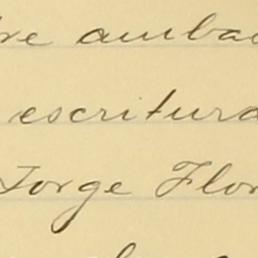 re amba
escritura
Jorge Flor